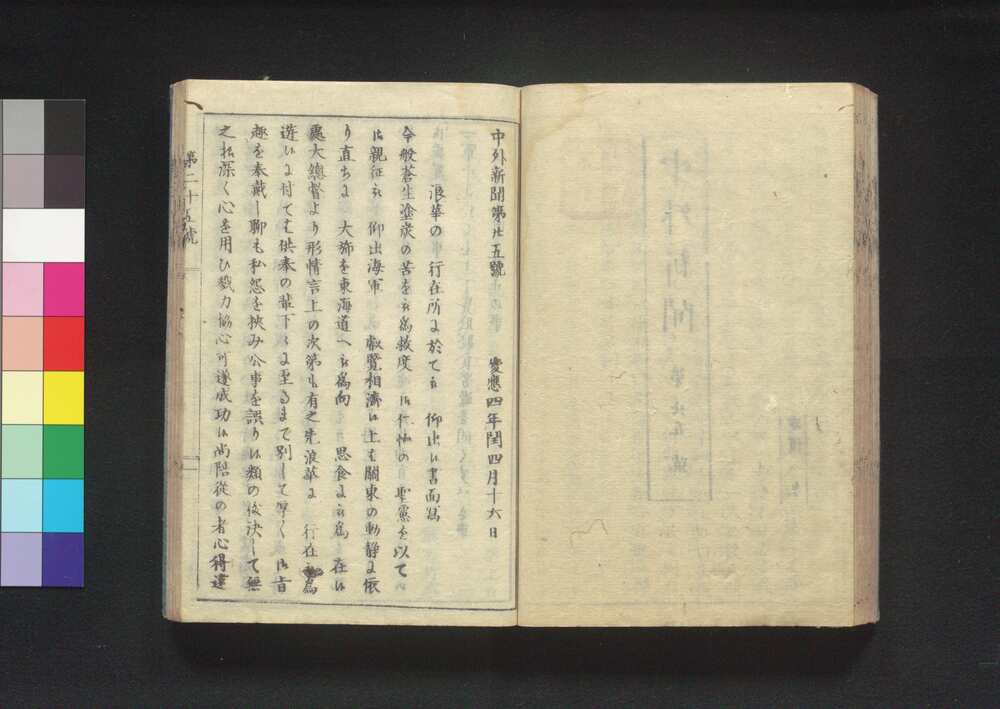 中外新聞第廿五號 慶應四年閏四月十六日
浪華の 行在所に於て被 仰出候書面寫
今般蒼生塗炭の苦を被爲救度 御仁恤の 聖慮を以て
御親征被 仰出海軍 叡覽相濟候上は關東の動靜に依
り直ちに 大旆を東海道へ被爲向 思食に被爲 在候
處大總督より形情言上の次第も有之先浪華に 行在被爲
遊候に付ては供奉の輩下々に至るまで別して厚く 御旨
趣を奉戴し聊も私怨を挾み公事を誤り候類の儀決して無
之相深く心を用ひ戮力協心可遂成功候尚陪從の者心得違
第二十五號
中外新聞
第廿五號